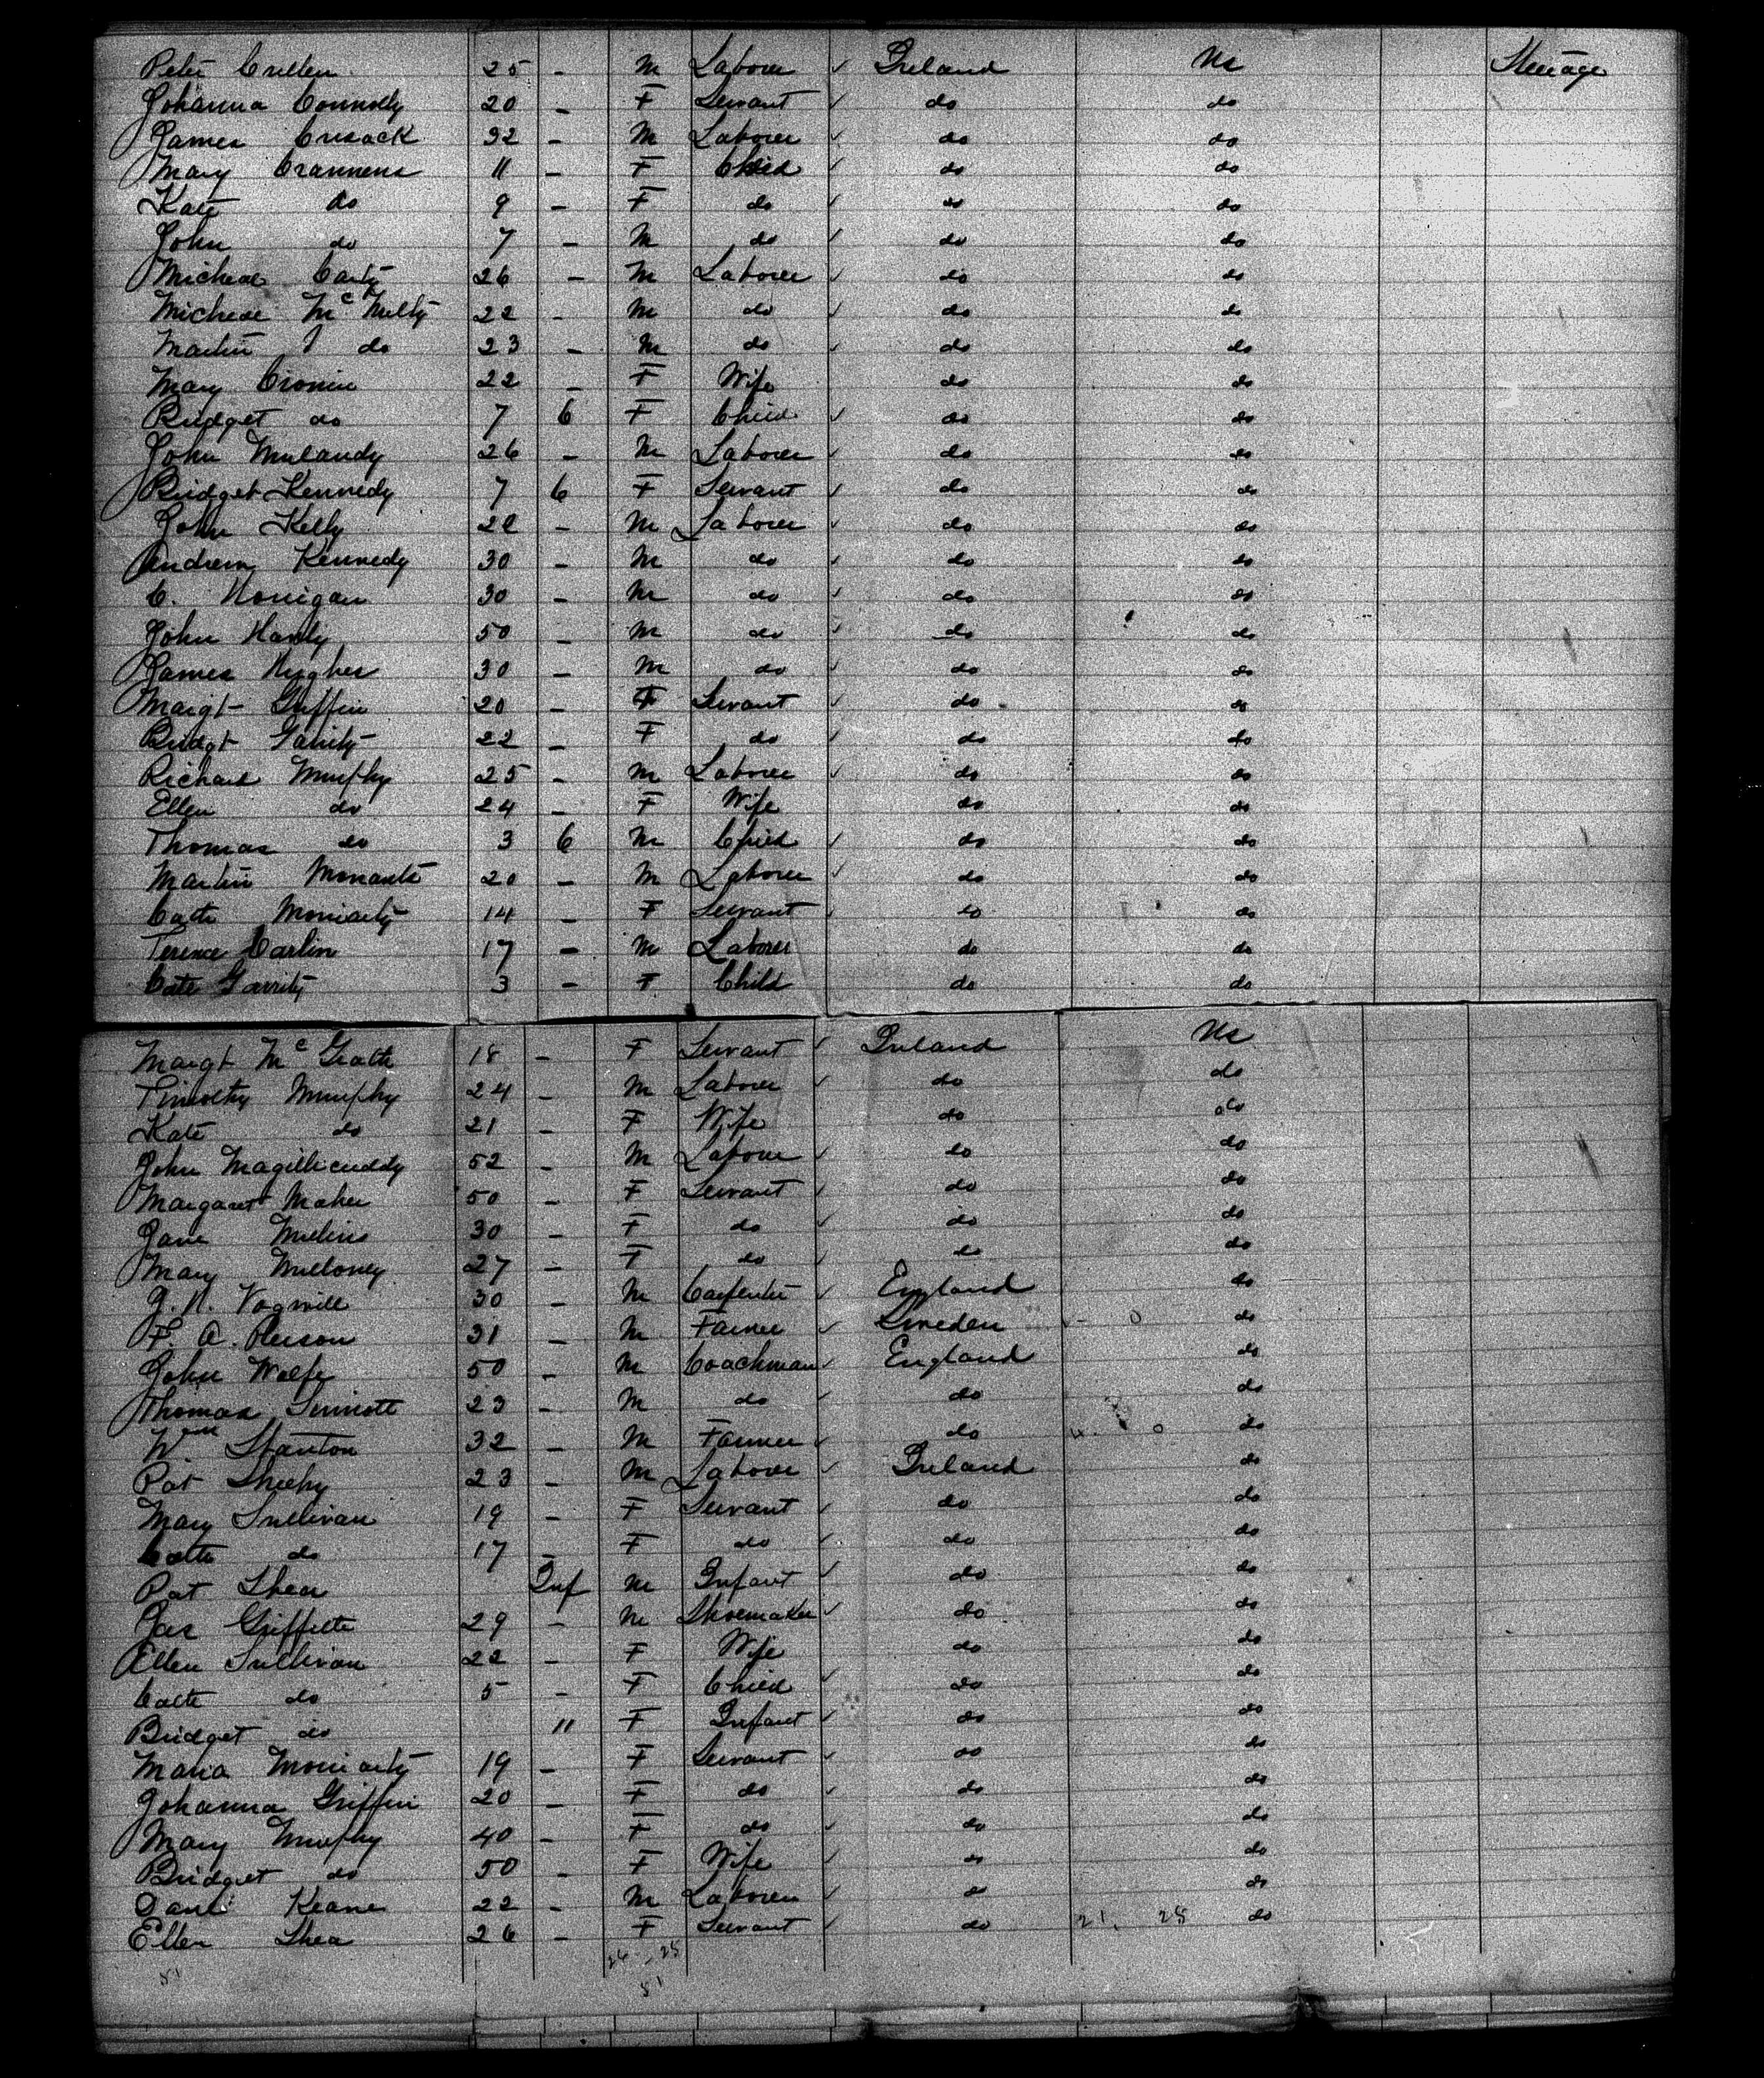 Peter Cullen 25 - M Laborer ✓ Ireland Us Steerage
Johanna Connolly 20 - F Servant ✓ do do
James Cusack 32 - M Laborer ✓ do do
Mary Crannens 11 - F Child ✓ do do
Kate do 9 - F do ✓ do do
John do 7 - M do ✓ do do
Micheal Carty 26 - M Laborer ✓ do do
Micheal McNulty 22 - M do ✓ do do
Martin do 23 - M do ✓ do do
Mary Cronin 22 - F Wife do do
Bridget do 7 6 F Child ✓ do do
John Mulandy 26 - M Laborer ✓ do do
Bridget Kennedy 7 6 F Servant ✓ do do
John Kelly 22 - M Laborer ✓ do do
Andrew Kennedy 30 - M do ✓ do do
C. Horrigan 30 - M do ✓ do do
John Hanly 50 - M do ✓ do do
James Hughes 30 - M do ✓ do do
Margt Griffin 20 - F Servant ✓ do do
Bridgt Garrity 22 - F do ✓ do do
Richard Murphy 25 - M Laborer ✓ do do
Ellen do 24 - F Wife do do
Thomas do 3 6 M Child ✓ do do
Martin 20 - M Laborer ✓ do do
Cath Moriarty 14 - F Servant do do
Terence Carlin 17 - M Laborer do do
Cate Garrity 3 - F Child do do
Margt McGrath 18 - F Servant ✓ Ireland Us
Timothy Murphy 24 - M Laborer ✓ do do
Kate do 21 - F Wife do do
John Magillicuddy 52 - M Laborer ✓ do do
Margaret Maher 50 - F Servant ✓ do do
Jane Mullins 30 - F do ✓ do do
Mary Mulloney 27 - F do ✓ do do
J. H. Vogwill 30 - M Carpenter ✓ England do
F. A. Pierson 31 - M Farmer ✓ Sweden do
John Wolfe 50 - M Coachman ✓ England do
Thomas Sinnott 23 - M do ✓ do do
Wm Stanton 32 - M Farmer ✓ do do
Pat Sheehy 23 - M Laborer ✓ Ireland do
Mary Sullivan 19 - F Servant ✓ do do
Cath do 17 - F do ✓ do do
Pat Shea Inf M Infant ✓ do do
Jas Griffith 29 - M Shoemaker ✓ do do
Ellen Sullivan 22 - F Wife do do
Cath do 5 - F Child ✓ do do
Bridget do 11 F Infant ✓ do do
Maria Moriarty 19 - F Servant ✓ do do
Johanna Griffin 20 - F do ✓ do do
Mary Murphy 40 - F do ✓ do do
Bridget do 50 - F Wife ✓ do do
Danl Keane 22 - M Laborer ✓ do do
Ellen Shea 26 - F Servant ✓ do 21. 28 do
51 26 . 25
51